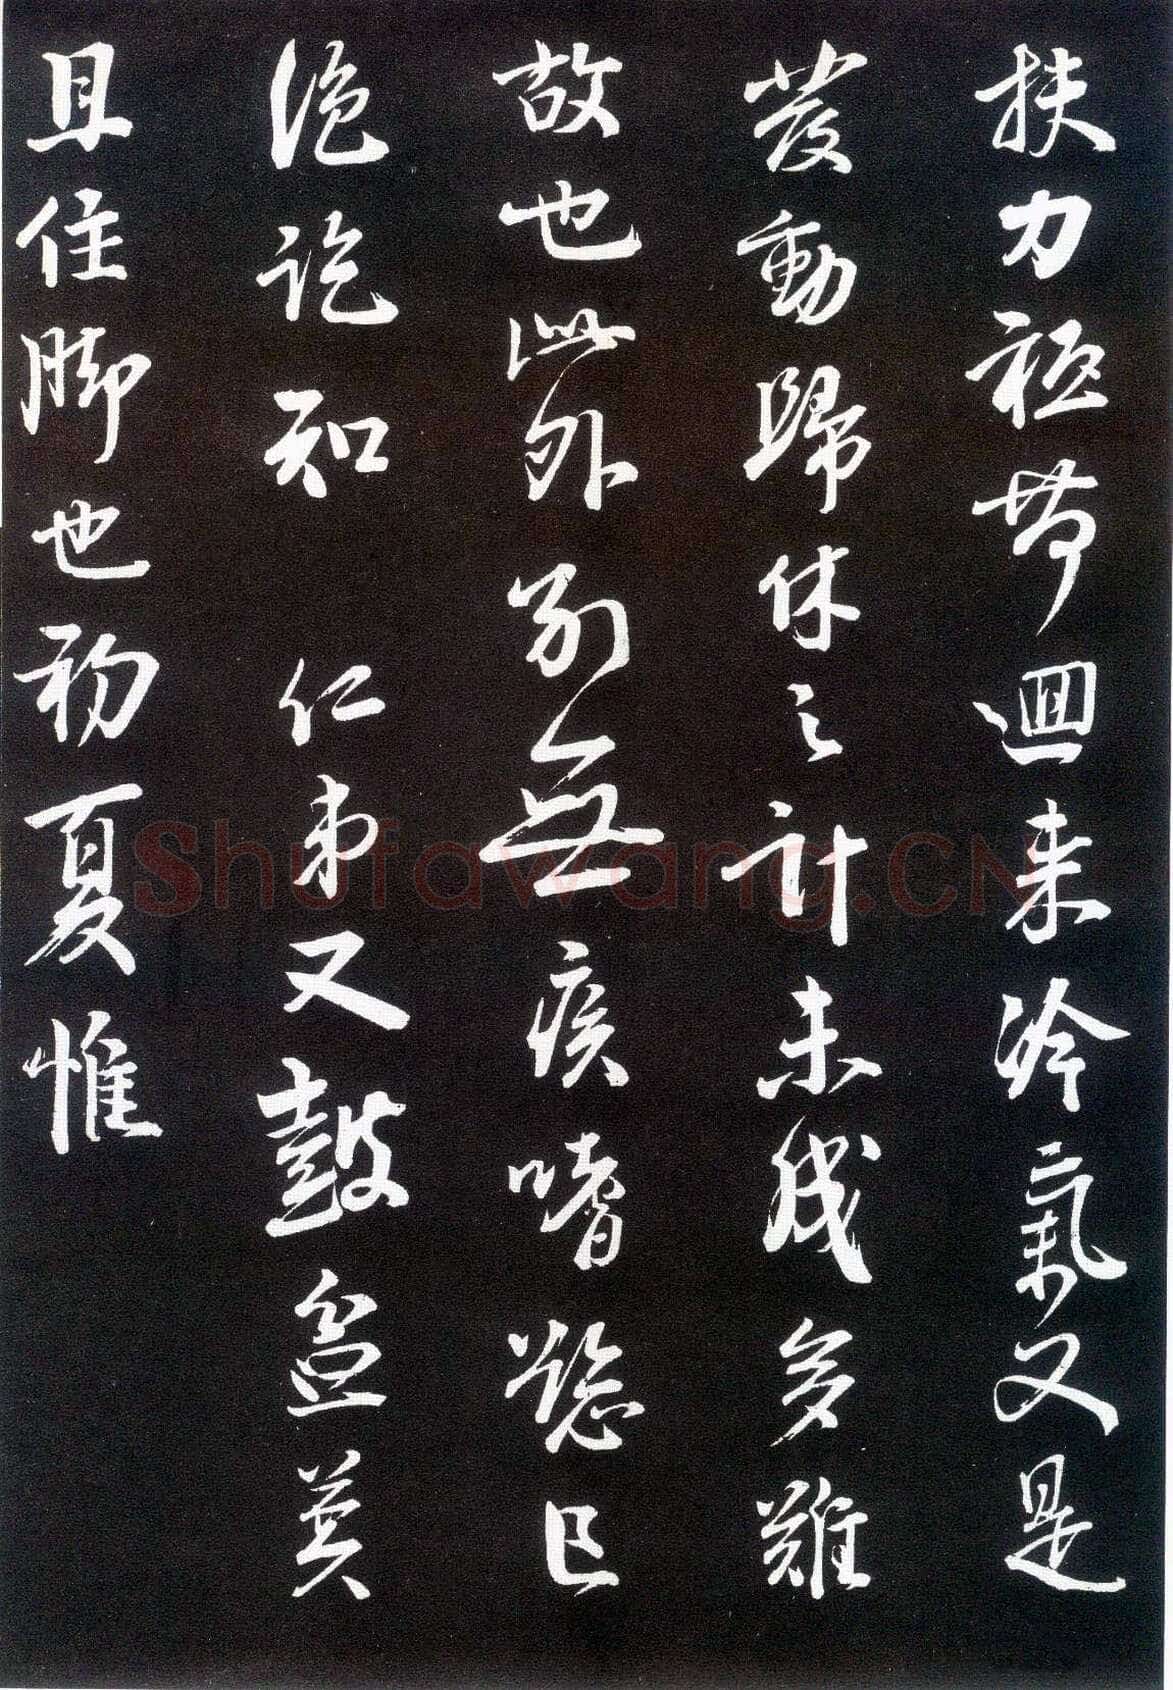 扶力祗带迴来冷氣又是
發動歸休之計未成多難
故也此外别無疾嗜慾已
絶訖知 仁弟又鼓盆莫
且住脚也初夏惟
Shufawang.CN